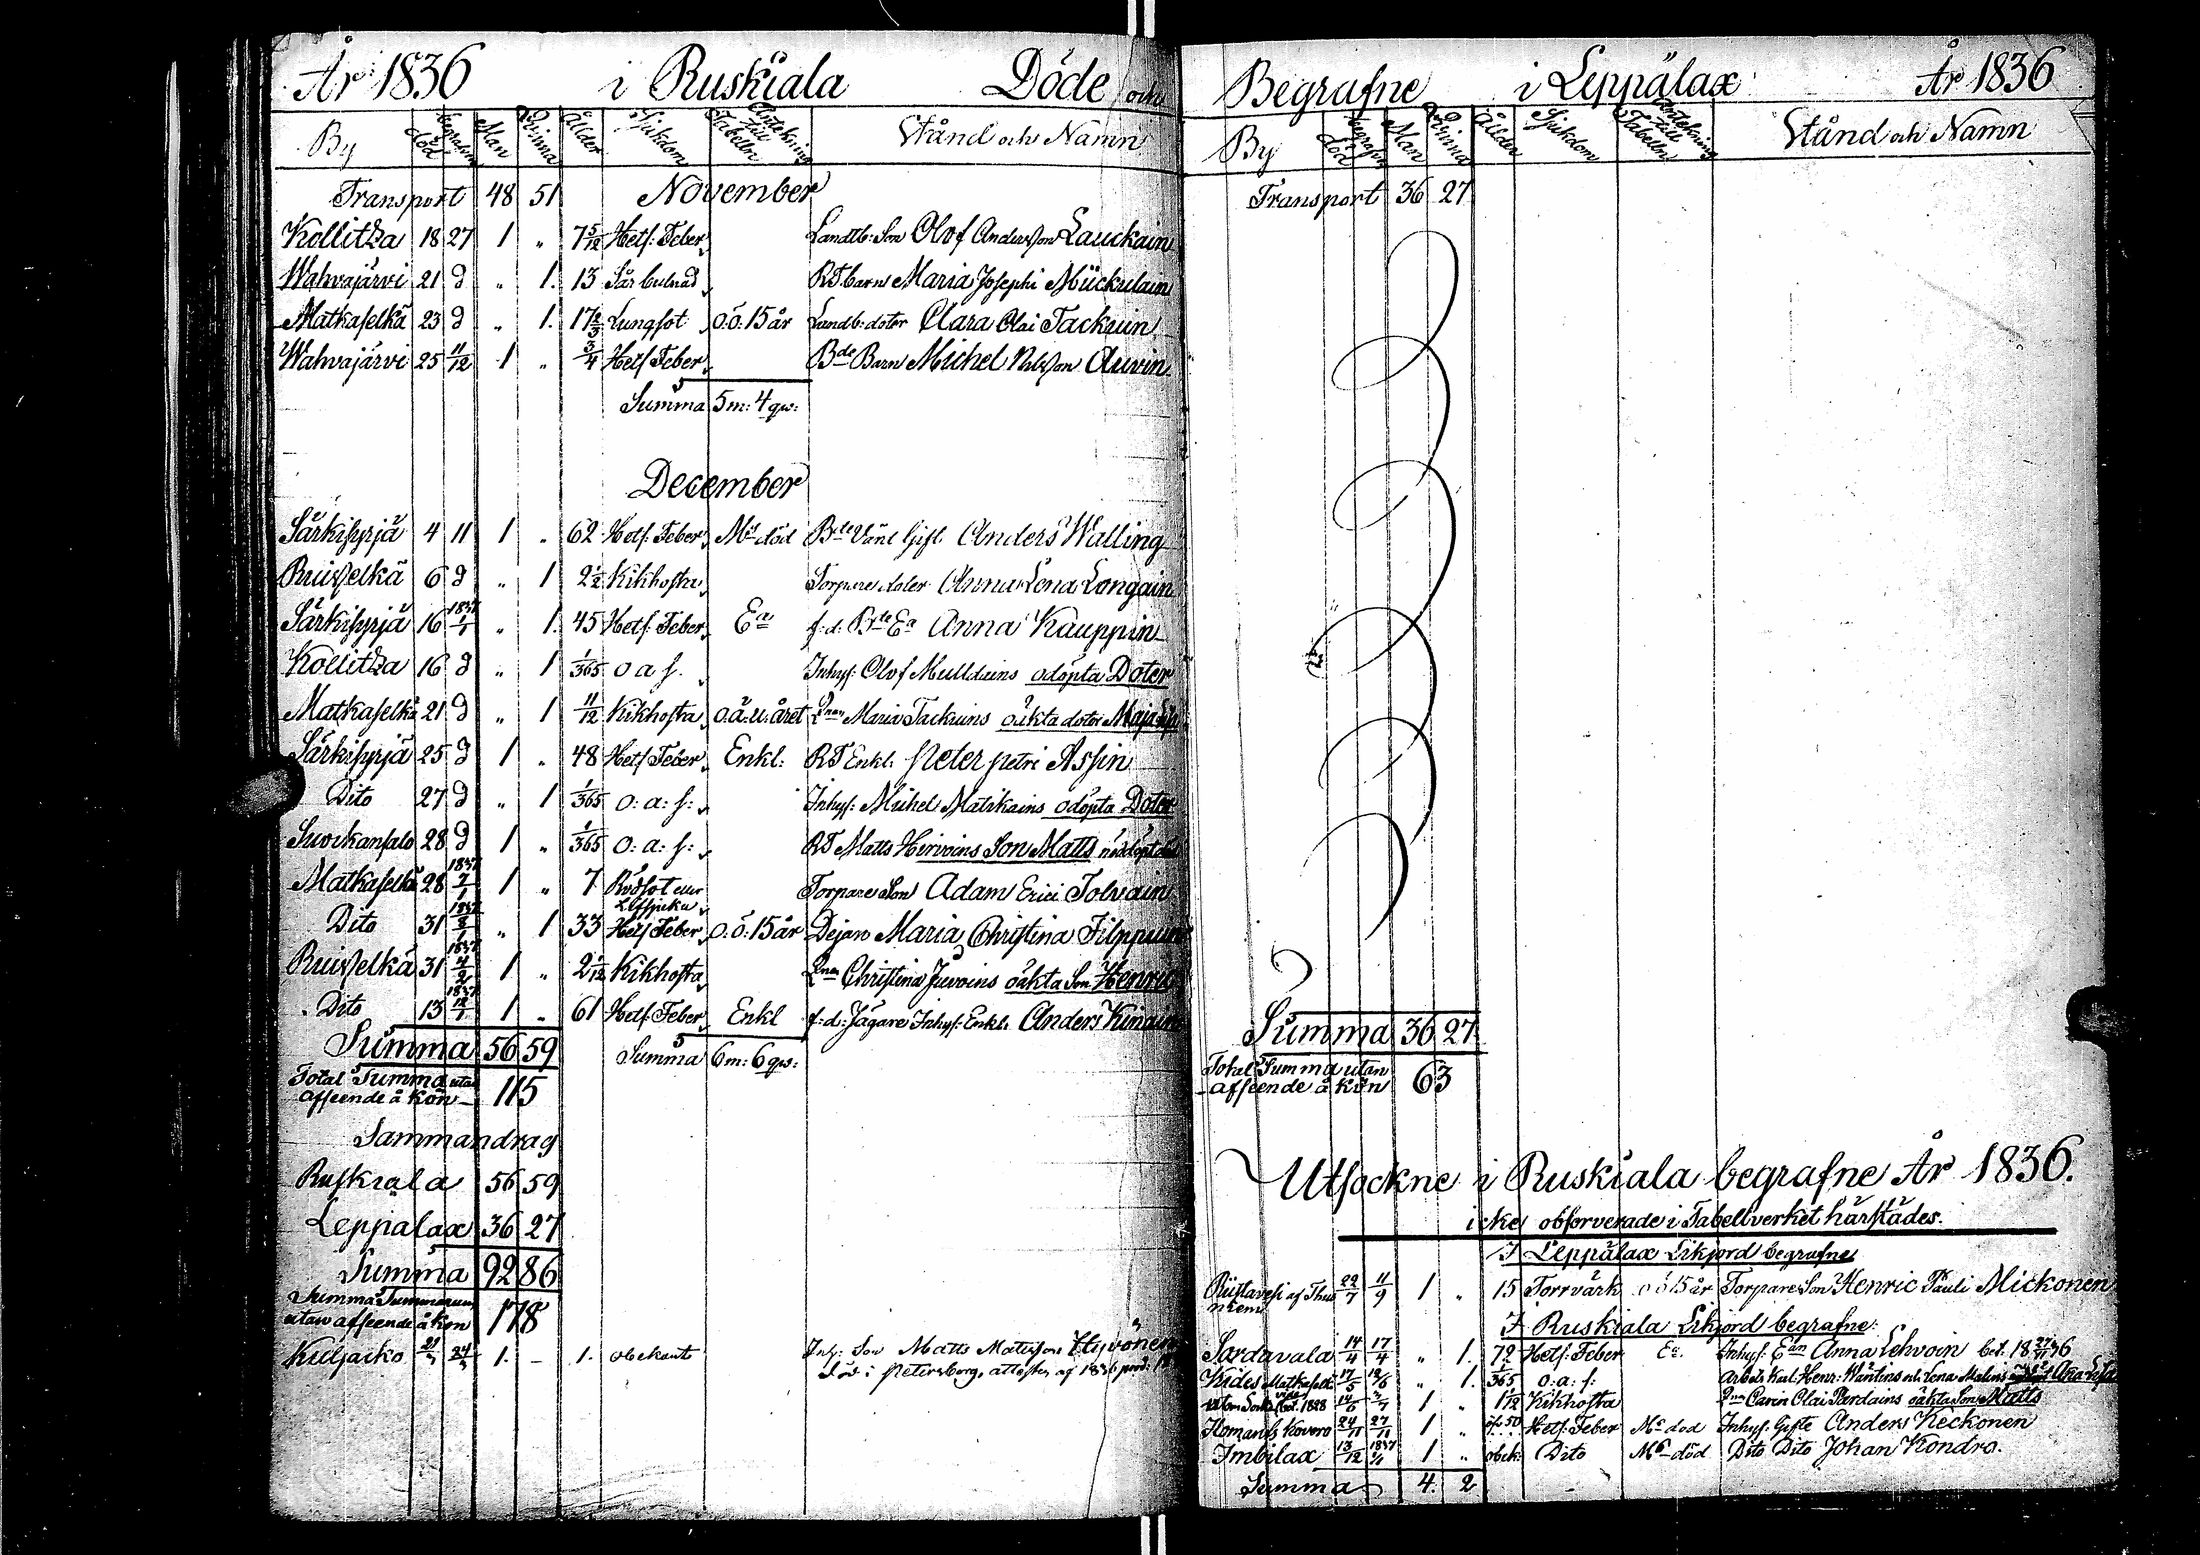 År 1836 i Ruskiala Döde och
By död begrafn Man Qvinna Ålder Sjukdom Antekning till Tabelln Stånd och Namn
Transport 48 51 November
Kollitza 18 27 1 " 7 5/12 Hets: Feber Landtb: Son Olof Andersson Lauckain
Wahvajärvi 21 d " 1. 13 Sår bulnad RT barn Maria Josephi Mückulain
Matkaselkä 23 d " 1. 17 2/3 Lungsot o.ö. 15 år Landb: doter Clara Olai Tackuin
Wahvajärvi 25 11/12 1 " 3/4 Hets Feber Bde Barn Michel Nilsson Auvin
Summa 5 m: 4 qv:
December
Särkisyrjä 4 11 1 " 62 Hets: Feber Ms död Bde Gift Anders Walling
Ruisselkä 6 d " 1 2 1/2 Kikhosta Torpare doter Anna Lena Longain
Särkisyrjä 16 1837 1/1 " 1. 45 Hets: Feber Ea f: d: Bde Ea Anna Kauppin
Kollitza 16 d " 1 1/365 o a s. Inhys: Olof Mulldains odöpta Doter
Matkaselkä 21 d " 1 11/12 Kikhosta o.ä.u. året Qnan Maria Tackuins oäkta doter Maja
Särkisyrjä 25 d 1 " 48 Hets Feber Enkl: RT Enkl: Peter Petri Assin
Dito 27 d " 1 1/365 o: a: s: Inhys: Michel Matikains odöpta Doter
Suorkansalo 28 d 1 " 1/365 o: a: s: RT Matts Hirvoins Son Matts
Matkaselkä 28 1837 2/1 1 " 7 Rödsot Torpare Son Adam Erici Tolvain
Dito 31 1837 8/1 " 1 33 Hets Feber o.ö. 15 år Dejan Maria Christina Filppuin
Ruisselkä 31 1837 4/2 1 " 2 1/12 Kikhosta Qnan Christina Juvoins oäkta Son Henric
Dito 13 1837 12/1 1 " 61 Hets: Feber Enkl f: d: Jägare Inhys: Enkl: Anders Kinain
Summa 56 59 Summa 6 m: 6 qv:
Total Summa utan
afseende å kön 115
Sammandrag
Ruskiala 56 59
Leppälax 36 27
Summa 92 86
Summa Summarum
utan afseende å kön 178
Kuljacko 1. – 1. obekant Inhy: Son Matts Matsson Hyvönen
död i Petersborg, attesten af 1836
Begrafne i Leppälax År 1836
By död begrafn Man Qvinna Ålder Sjukdom Antekning till Tabelln Stånd och Namn
Transport 36 27
Summa 36 27
Total Summa utan
afseende å kön 63
Utsockne i Ruskiala begrafne År 1836.
icke observerade i Tabellverket härstädes.
I Leppälax Likjord begrafne
Ristavesi af 22/7 11/9 1 " 15 Torrvärk o ö 15 år Torpare Son Henric Pauli Mickonen
niemi
I Ruskiala Likjord begrafne:
Sordavala 14/4 17/4 " 1. 72 Hets: Feber Ea. Inhys: Ean Anna Lehvoin
Kides Matkaselkä 17/5 12/6 " 1. 1/365 o: a: s: Arbets Karl Henr: Lena
1828 14/6 3/7 1 " 1 1/12 Kikhosta Qnan Carin Olai Pardains oäkta Son Matts
Ilomants Kovero 24/11 27/11 1 " öf. 50 Hets: Feber Ms död Inhys: Gifte Anders Keckonen
Imbilax 13/12 1837 1 " obek: Dito Ms död Dito Dito Johan Kondro.
Summa 4. 2